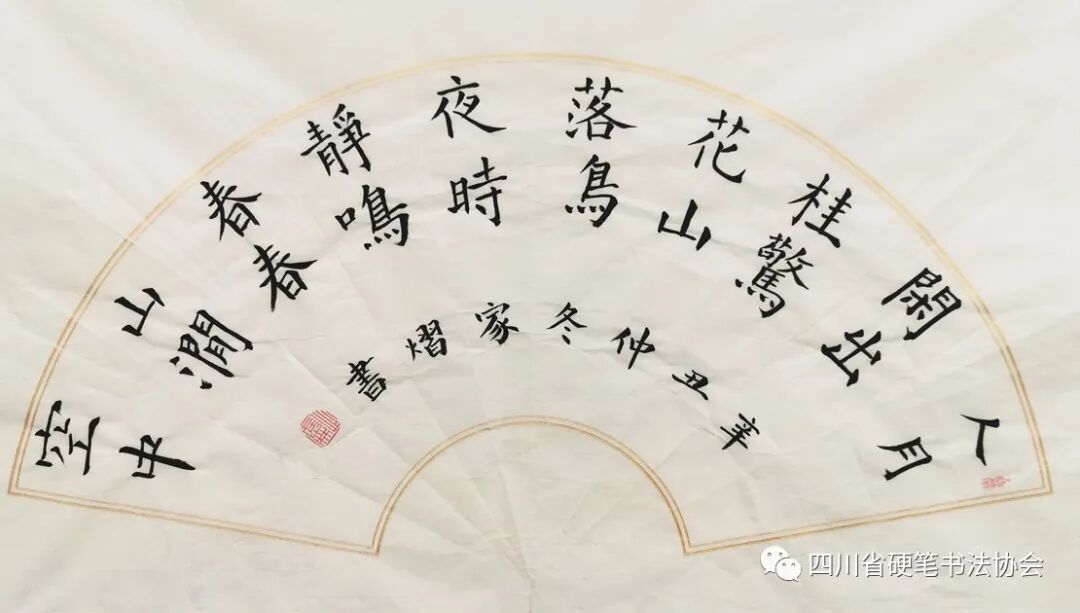 人閑桂花落夜靜春山空
月出驚山鳥時鳴春澗中
辛丑仲冬家熠書
四川省硬笔书法协会